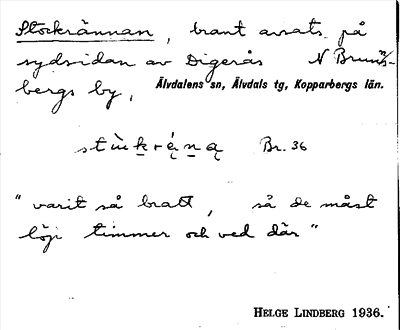 Stockrännan, brant avsats på
sydsidan av Digerås N Brunns-
bergs by, Älvdalens sn, Älvdals tg, Kopparbergs län.
Br. 36
"varit så bratt, så de måst
löji timmer och ved där"
HELGE LINDBERG 1936.